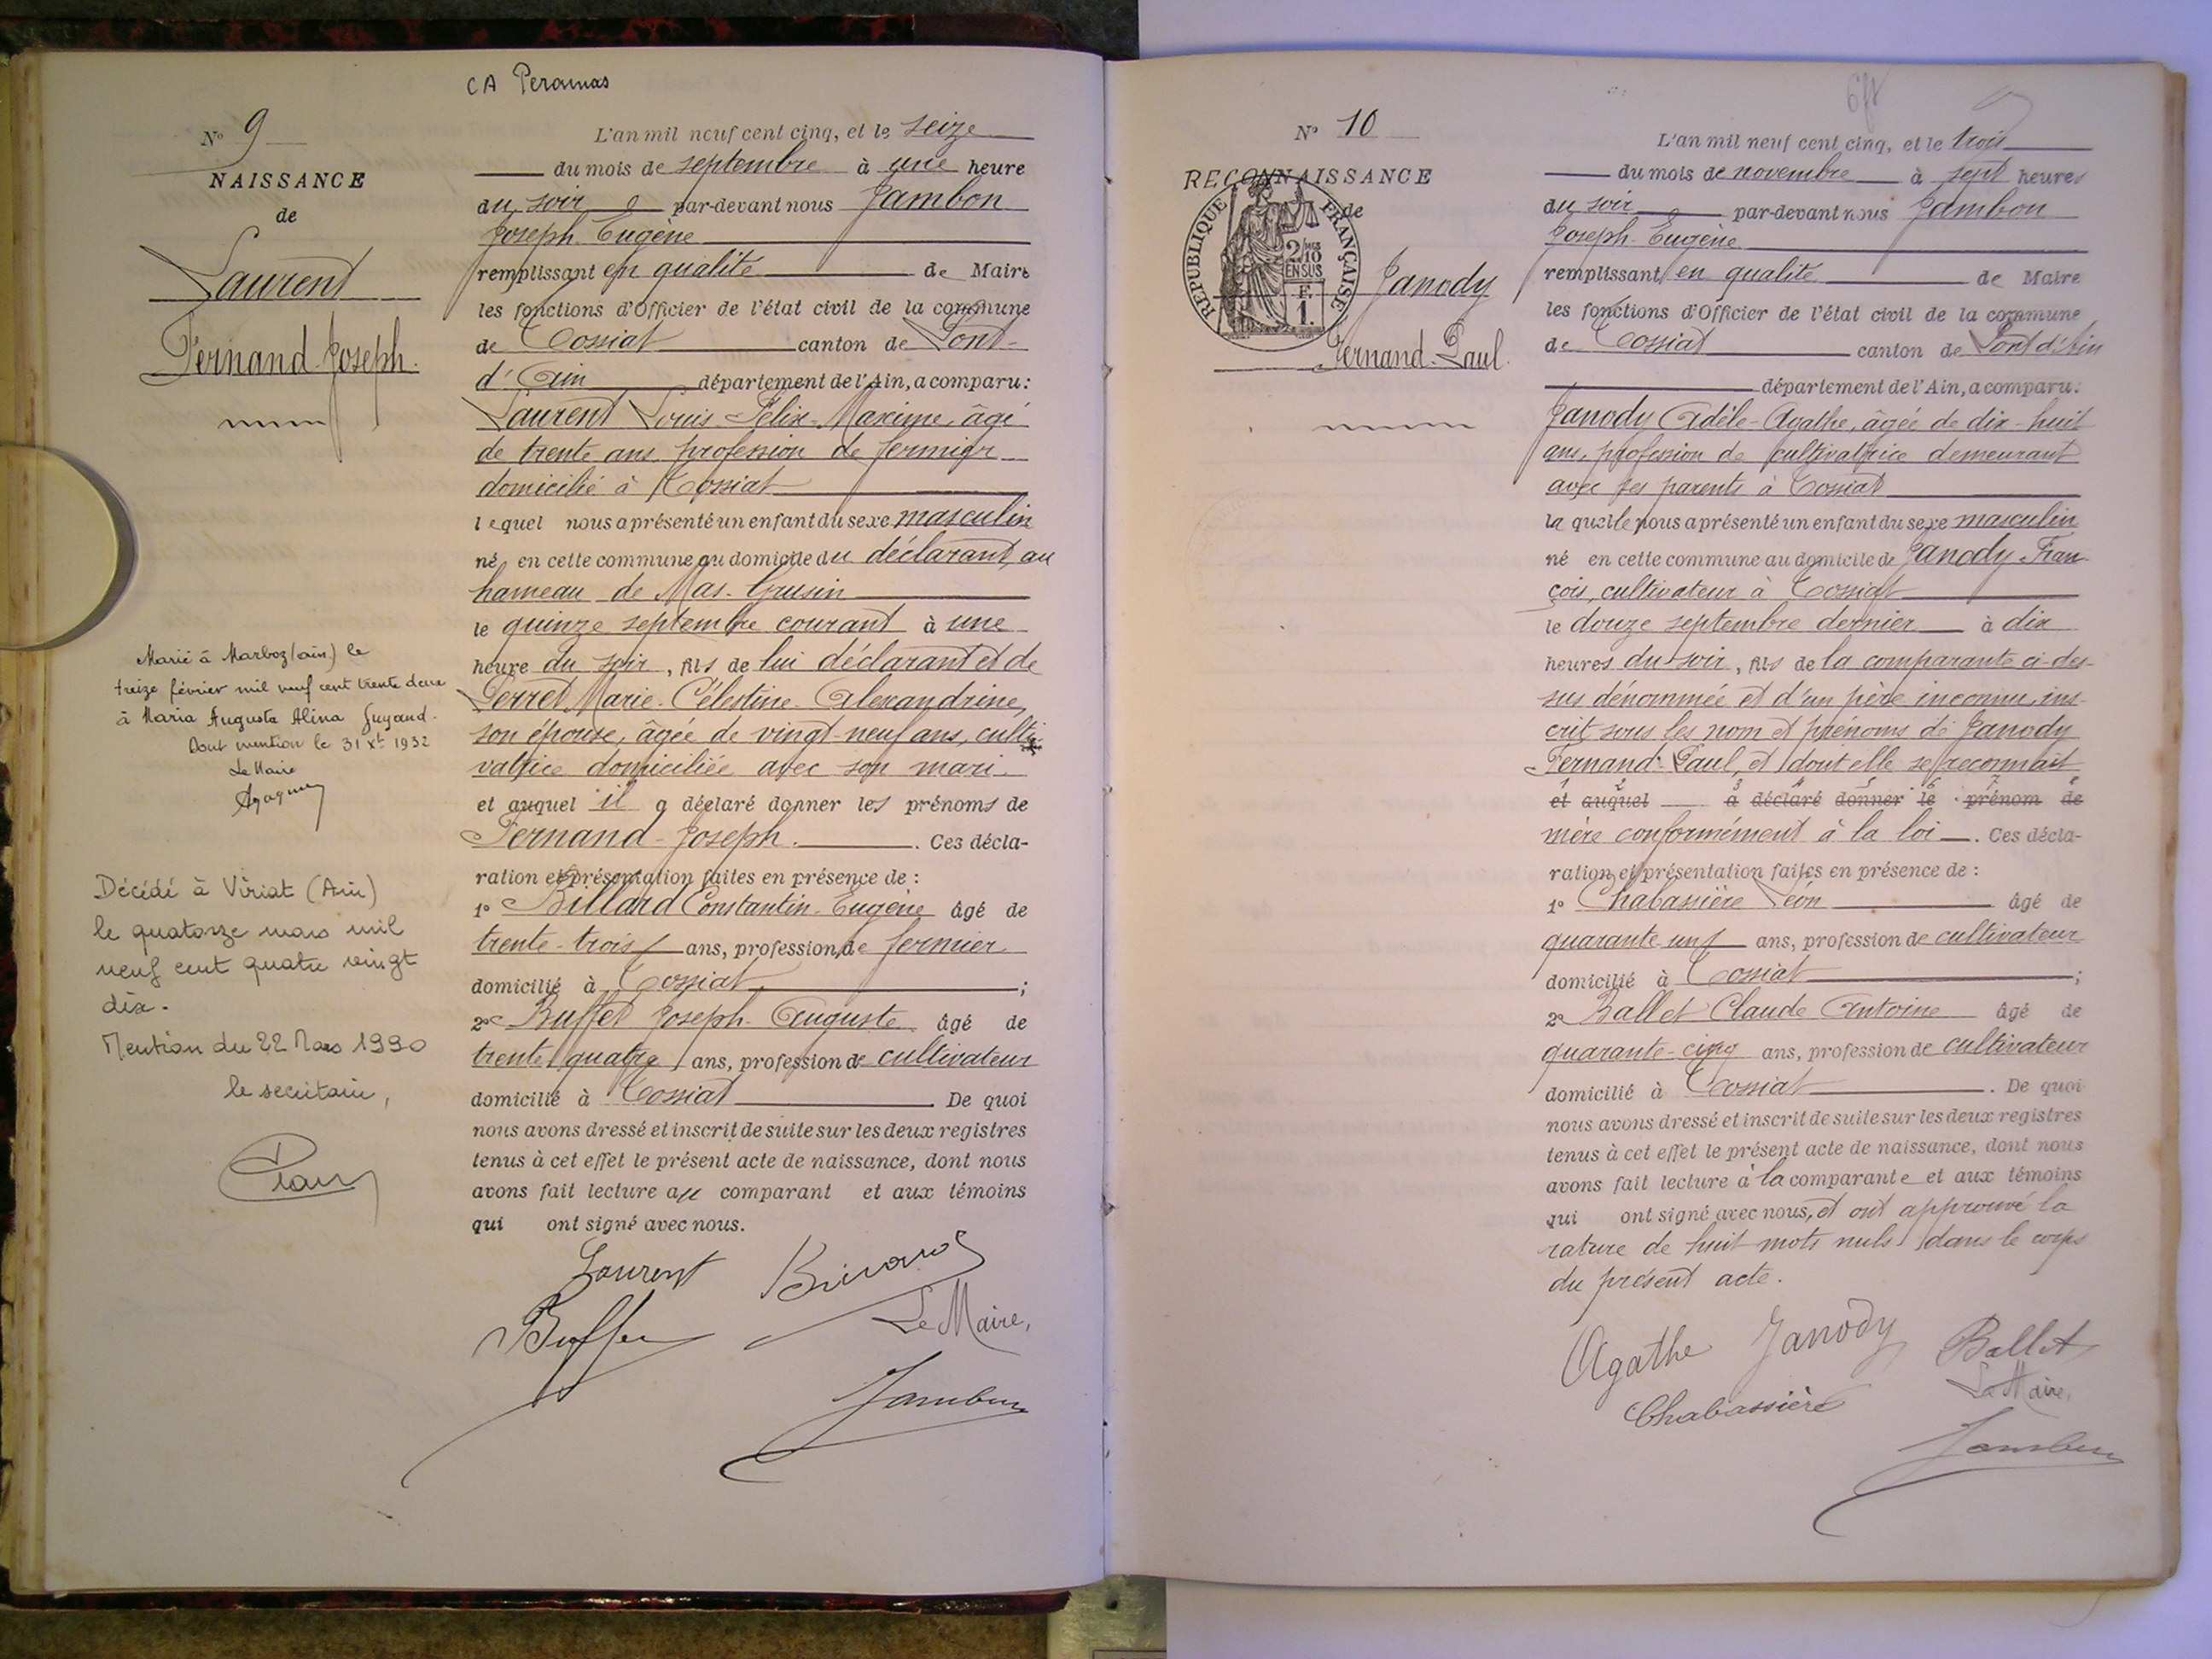 CA Peronnas
N° 9
NAISSANCE
de
Laurent
Fernand-Joseph.
Marié à Marboz (ain) le
treize février mil neuf cent trente deux
à Maria Augusta Alina Guyand.
Dont mention le 31 Xbre 1932
Le Maire
Décédé à Viriat (Ain)
le quatorze mars mil
neuf cent quatre vingt
dix.
Mention du 22 Mars 1990
le secrétaire,
L'an mil neuf cent cinq, et le seize
du mois de septembre à une heure
du soir par-devant nous Jambon
Joseph-Eugène
remplissant en qualité de Maire
les fonctions d'Officier de l'état civil de la commune
de Tossiat canton de Pont-
d'Ain département de l'Ain, a comparu:
Laurent Louis-Félix-Maxime, âgé
de trente ans, profession de fermier
domicilié à Tossiat
lequel nous a présenté un enfant du sexe masculin
né en cette commune au domicile du déclarant, au
hameau de Mas-Grusin
le quinze septembre courant à une
heure du soir, fils de lui déclarant et de
Perret Marie-Célestine-Alexandrine,
son épouse, âgée de vingt-neuf ans, culti-
vatrice domiciliée avec son mari
et auquel il a déclaré donner les prénoms de
Fernand-Joseph. Ces décla-
ration et présentation faites en présence de :
1° Billard Constantin-Eugène âgé de
trente-trois ans, profession de fermier
domicilié à Tossiat ;
2° Buffet Joseph-Auguste âgé de
trente quatre ans, profession de cultivateur
domicilié à Tossiat. De quoi
nous avons dressé et inscrit de suite sur les deux registres
tenus à cet effet le présent acte de naissance, dont nous
avons fait lecture au comparant et aux témoins
qui ont signé avec nous.
Laurent
Buffet
Le Maire,
Jambon
N° 10
RECONNAISSANCE
de
REPUBLIQUE FRANÇAISE
2/10
EN SUS
F.
1.
Janody
Fernand-Paul.
L'an mil neuf cent cinq, et le trois
du mois de novembre à sept heures
du soir par-devant nous Jambon
Joseph-Eugène
remplissant en qualité de Maire
les fonctions d'Officier de l'état civil de la commune
de Tossiat canton de Pont d'Ain
département de l'Ain, a comparu:
Janody Adèle-Agathe, âgée de dix-huit
ans, profession de cultivatrice demeurant
avec ses parents à Tossiat
la quelle nous a présenté un enfant du sexe masculin
né en cette commune au domicile de Janody Fran-
çois, cultivateur à Tossiat
le douze septembre dernier à dix
heures du soir, fils de la comparante ci-des-
sus dénommée et d'un père inconnu, ins-
crit sous les nom et prénoms de Janody
Fernand-Paul, et dont elle se reconnaît
et auquel a déclaré donner le prénom de
mère conformément à la loi. Ces décla-
ration et présentation faites en présence de :
1° Chabassière Léon âgé de
quarante-un ans, profession de cultivateur
domicilié à Tossiat ;
2° Ballet Claude Antoine âgé de
quarante-cinq ans, profession de cultivateur
domicilié à Tossiat. De quoi
nous avons dressé et inscrit de suite sur les deux registres
tenus à cet effet le présent acte de naissance, dont nous
avons fait lecture à la comparante et aux témoins
qui ont signé avec nous, et ont approuvé la
rature de huit mots nuls dans le corps
du présent acte.
Agathe Janody Ballet
Chabassière
Le Maire,
Jambon